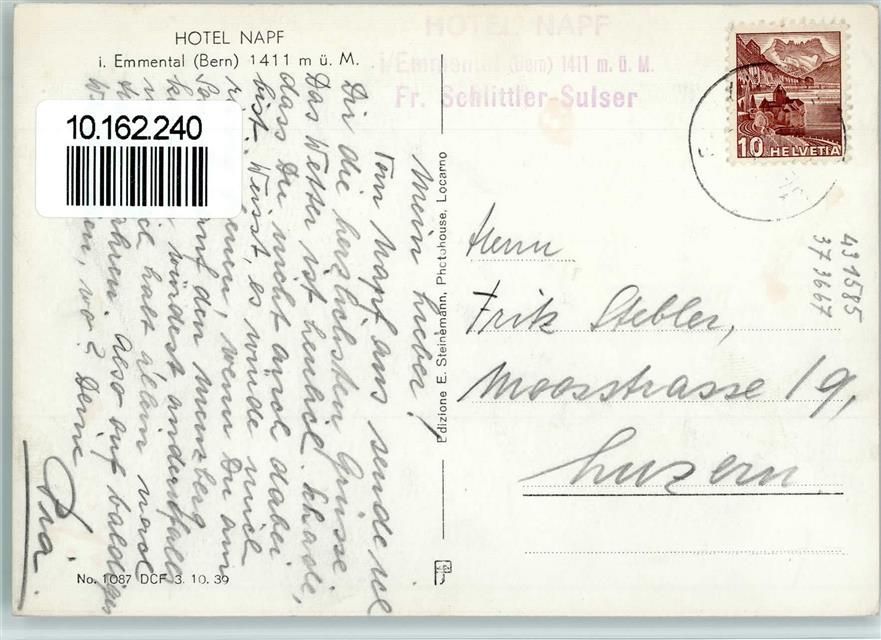 HOTEL NAPF
i. Emmental (Bern) 1411 m ü. M.
HOTEL NAPF
i/Emmental (Bern) 1411 m. ü. M.
Fr. Schlittler-Sulser
10 HELVETIA
10.162.240
Mein Lieber!
Vom Napf aus sende ich
Dir die herzlichsten Grüsse
Das Wetter ist herrlich. Schade,
dass Du nicht auch dabei
bist. Weisst, es würde mich
wenn Du am
auf den
würdest andernfalls
halt allein nach
fahren. Also auf baldiges
Deine
Pia.
Edizione E. Steinemann, Photohouse, Locarno
Herrn
Fritz Stebler,
Moosstrasse 19,
Luzern.
431585
373667
No. 1087 DCF 3. 10. 39